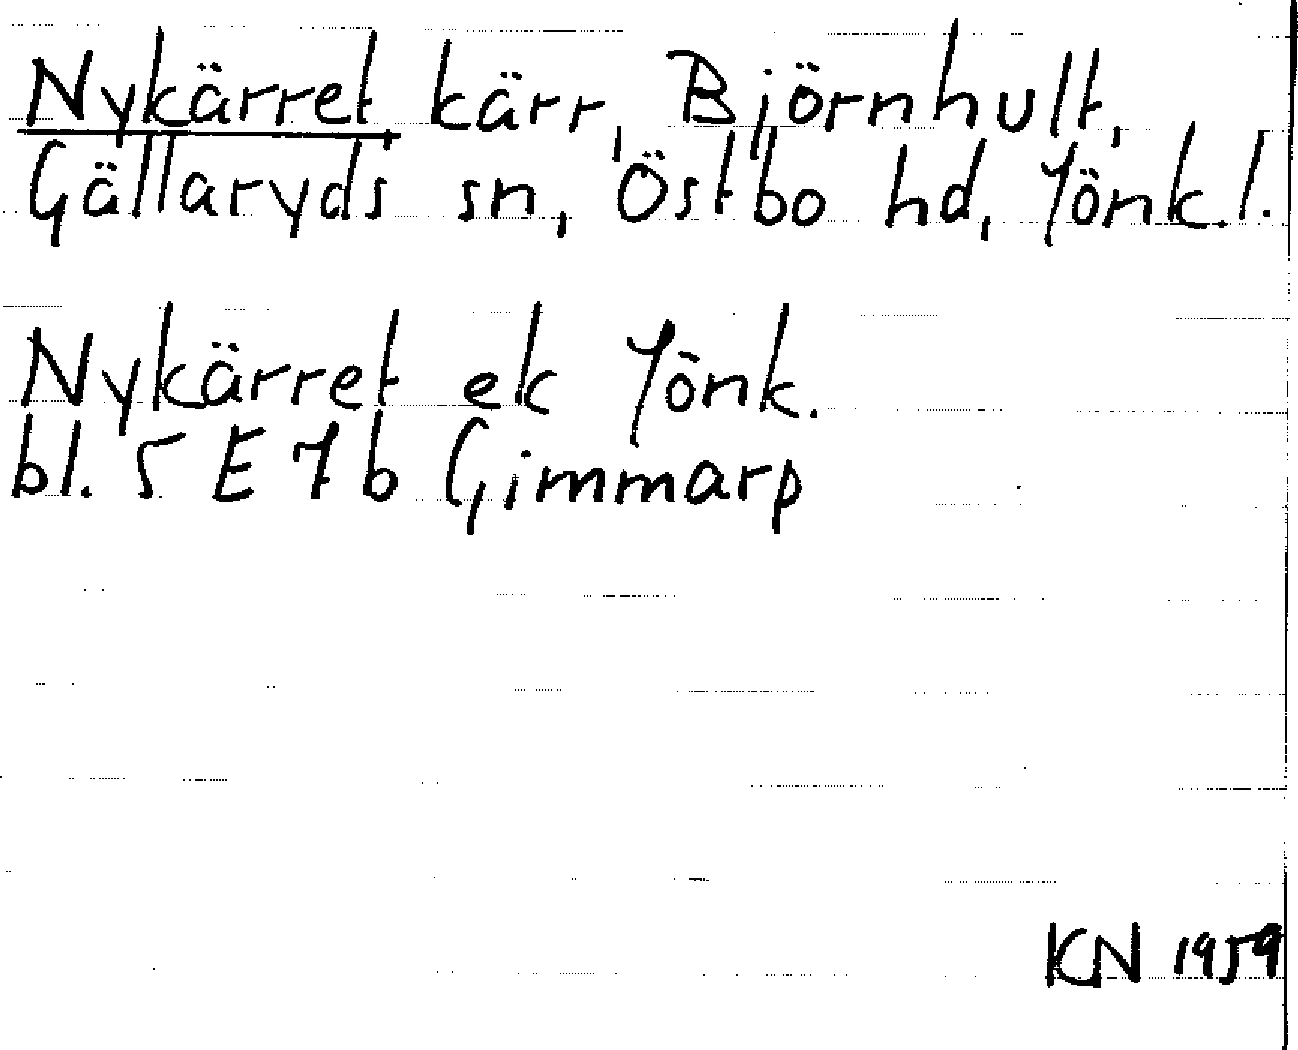 Nykärret, kärr, Björnhult,
Gällaryds sn, Östbo hd, Jönk. l.
Nykärret ek Jönk.
bl. 5 E 7 b Gimmarp
KN 1959